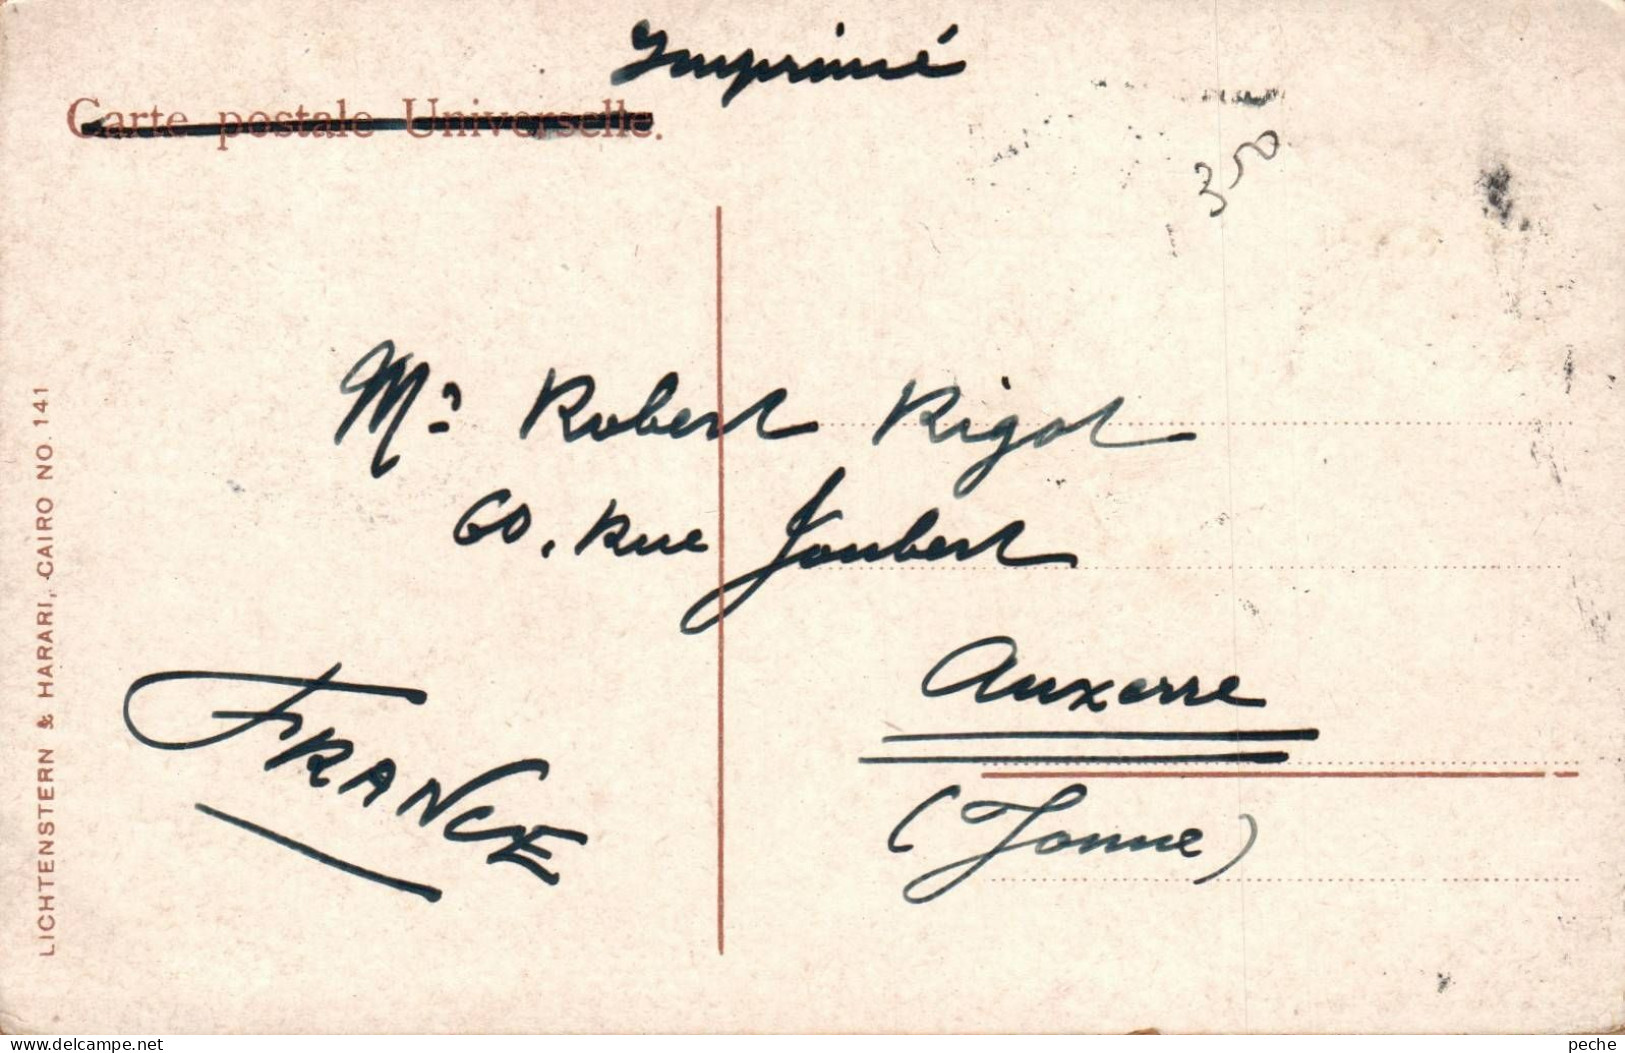 Imprimé
Carte postale Universelle.
350
Mr Robert Rigot
60, Rue Joubert
Auxerre
(Yonne)
FRANCE
LICHTENSTERN & HARARI, CAIRO NO. 141
www.delcampe.net
peche